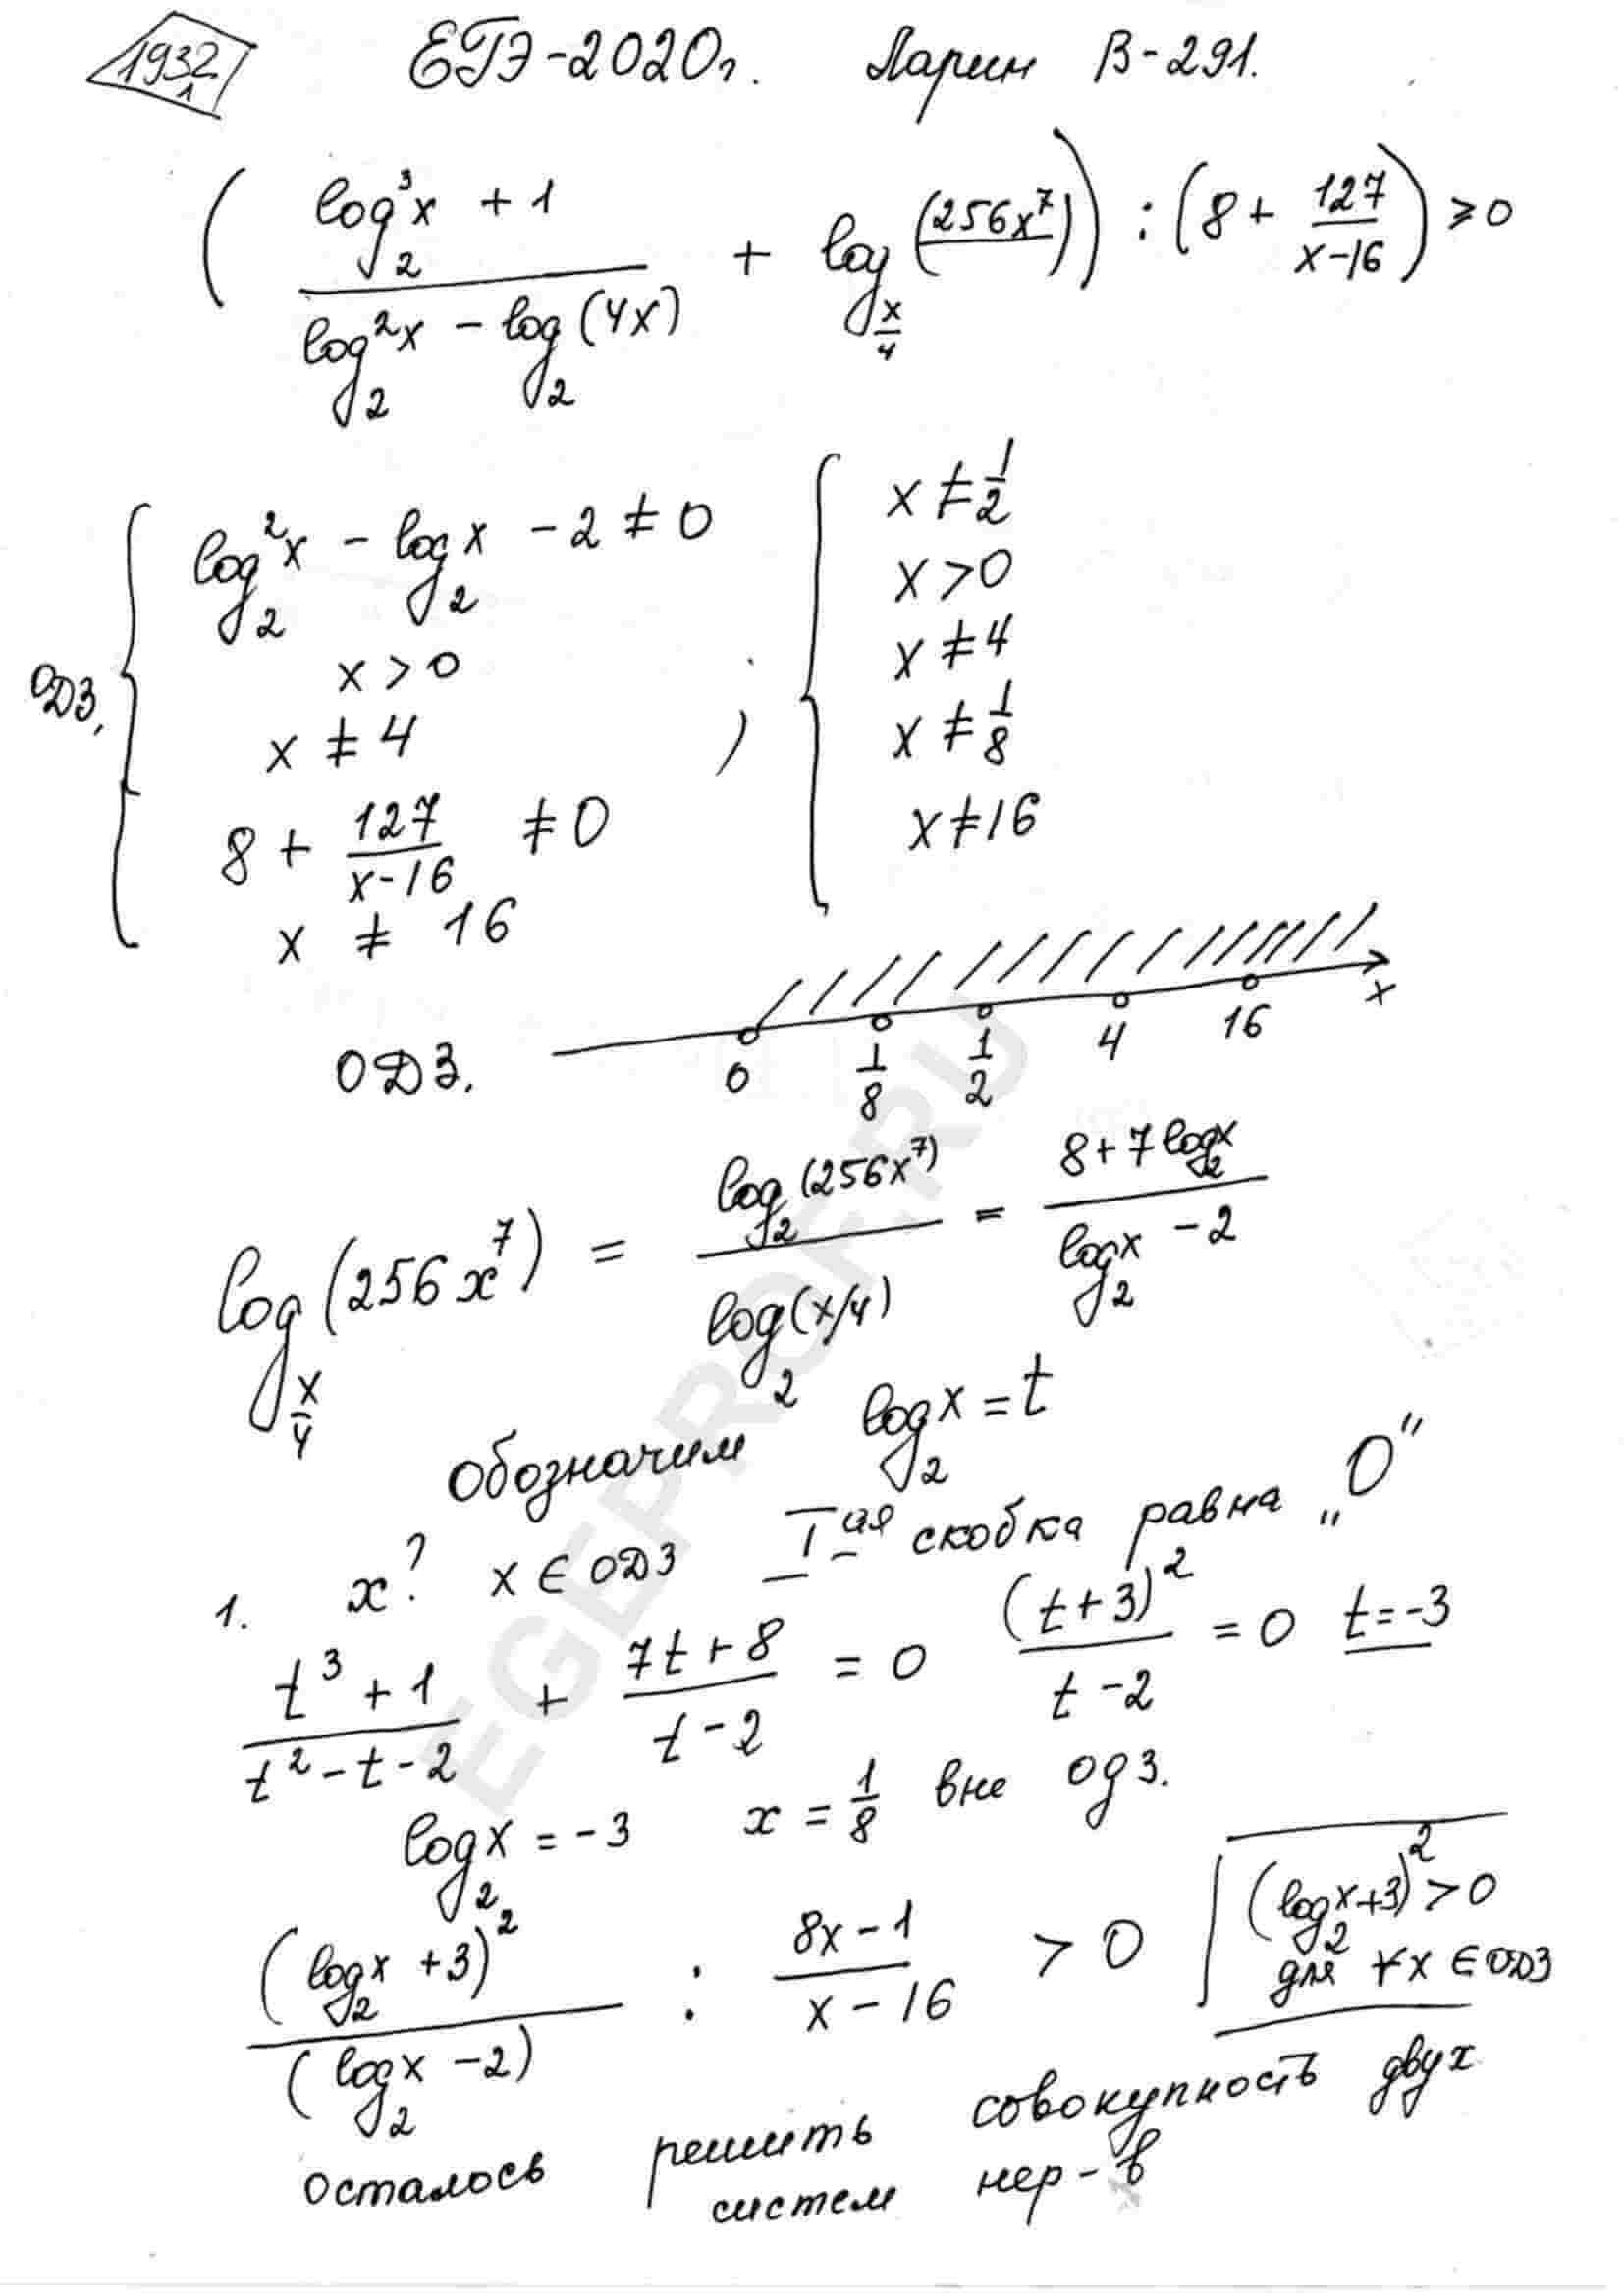 1932
1
ЕГЭ-2020г. Ларин В-291.
( (log₂³x + 1)/(log₂²x - log₂(4x)) + log_{x/4}(256x⁷) ) : (8 + 127/(x-16)) ⩾ 0
ОДЗ. { log₂²x - log₂x - 2 ≠ 0 ; { x ≠ 1/2
x > 0 x > 0
x ≠ 4 x ≠ 4
8 + 127/(x-16) ≠ 0 x ≠ 1/8
x ≠ 16 x ≠ 16
ОДЗ. 0 1/8 1/2 4 16 x
log_{x/4}(256x⁷) = log₂(256x⁷)/log₂(x/4) = (8+7log₂x)/(log₂x - 2)
обозначим log₂x = t
1. x? x ∈ ОДЗ I ая скобка равна „0"
(t³+1)/(t²-t-2) + (7t+8)/(t-2) = 0 (t+3)²/(t-2) = 0 t=-3
log₂x = -3 x = 1/8 вне одз.
(log₂x + 3)²/(log₂x - 2) : (8x-1)/(x-16) > 0 (log₂x+3)² > 0
для ∀x ∈ ОДЗ
осталось решить совокупность двух
систем нер-в
EGEPROF.RU